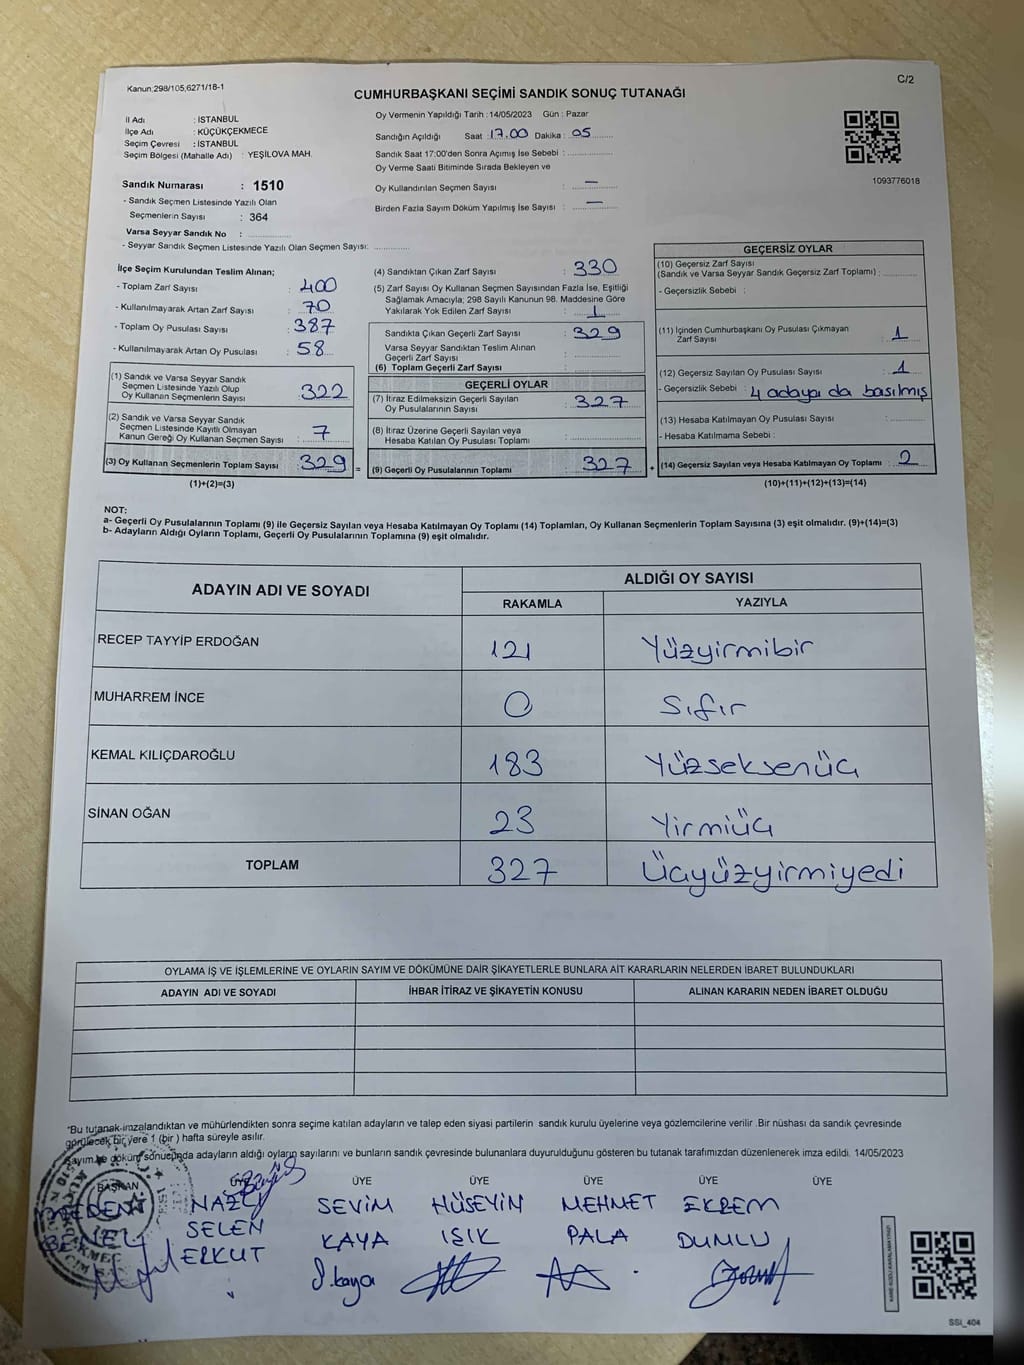 Kanun;298/105,6271/18-1
C/2
CUMHURBAŞKANI SEÇİMİ SANDIK SONUÇ TUTANAĞI
İl Adı : İSTANBUL
İlçe Adı : KÜÇÜKÇEKMECE
Seçim Çevresi : İSTANBUL
Seçim Bölgesi (Mahalle Adı) : YEŞİLOVA MAH.
Oy Vermenin Yapıldığı Tarih :14/05/2023 Gün : Pazar
Sandığın Açıldığı Saat :17.00 Dakika : 05
Sandık Saat 17:00'den Sonra Açımış İse Sebebi :
Oy Verme Saati Bitiminde Sırada Bekleyen ve
Oy Kullandırılan Seçmen Sayısı : —
Birden Fazla Sayım Döküm Yapılmış İse Sayısı : —
1093776018
Sandık Numarası : 1510
- Sandık Seçmen Listesinde Yazılı Olan
Seçmenlerin Sayısı : 364
Varsa Seyyar Sandık No :
- Seyyar Sandık Seçmen Listesinde Yazılı Olan Seçmen Sayısı:
İlçe Seçim Kurulundan Teslim Alınan;
- Toplam Zarf Sayısı : 400
- Kullanılmayarak Artan Zarf Sayısı : 70
- Toplam Oy Pusulası Sayısı : 387
- Kullanılmayarak Artan Oy Pusulası : 58
(1) Sandık ve Varsa Seyyar Sandık
Seçmen Listesinde Yazılı Olup
Oy Kullanan Seçmenlerin Sayısı : 322
(2) Sandık ve Varsa Seyyar Sandık
Seçmen Listesinde Kayıtlı Olmayan
Kanun Gereği Oy Kullanan Seçmen Sayısı : 7
(3) Oy Kullanan Seçmenlerin Toplam Sayısı : 329 =
(1)+(2)=(3)
(4) Sandıktan Çıkan Zarf Sayısı : 330
(5) Zarf Sayısı Oy Kullanan Seçmen Sayısından Fazla İse, Eşitliği
Sağlamak Amacıyla, 298 Sayılı Kanunun 98. Maddesine Göre
Yakılarak Yok Edilen Zarf Sayısı : 1
Sandıkta Çıkan Geçerli Zarf Sayısı : 329
Varsa Seyyar Sandıktan Teslim Alınan
Geçerli Zarf Sayısı :
(6) Toplam Geçerli Zarf Sayısı :
GEÇERLİ OYLAR
(7) İtiraz Edilmeksizin Geçerli Sayılan
Oy Pusulalarının Sayısı : 327
(8) İtiraz Üzerine Geçerli Sayılan veya
Hesaba Katılan Oy Pusulası Toplamı :
(9) Geçerli Oy Pusulalarının Toplamı : 327 +
GEÇERSİZ OYLAR
(10) Geçersiz Zarf Sayısı
(Sandık ve Varsa Seyyar Sandık Geçersiz Zarf Toplamı) :
- Geçersizlik Sebebi :
(11) İçinden Cumhurbaşkanı Oy Pusulası Çıkmayan
Zarf Sayısı : 1
(12) Geçersiz Sayılan Oy Pusulası Sayısı : 1
- Geçersizlik Sebebi : 4 adaya da basılmış
(13) Hesaba Katılmayan Oy Pusulası Sayısı :
- Hesaba Katılmama Sebebi :
(14) Geçersiz Sayılan veya Hesaba Katılmayan Oy Toplamı : 2
(10)+(11)+(12)+(13)=(14)
NOT:
a- Geçerli Oy Pusulalarının Toplamı (9) ile Geçersiz Sayılan veya Hesaba Katılmayan Oy Toplamı (14) Toplamları, Oy Kullanan Seçmenlerin Toplam Sayısına (3) eşit olmalıdır. (9)+(14)=(3)
b- Adayların Aldığı Oyların Toplamı, Geçerli Oy Pusulalarının Toplamına (9) eşit olmalıdır.
ADAYIN ADI VE SOYADI
ALDIĞI OY SAYISI
RAKAMLA YAZIYLA
RECEP TAYYİP ERDOĞAN 121 Yüzyirmibir
MUHARREM İNCE 0 Sıfır
KEMAL KILIÇDAROĞLU 183 Yüzseksenüç
SİNAN OĞAN 23 Yirmiüç
TOPLAM 327 Üçyüzyirmiyedi
OYLAMA İŞ VE İŞLEMLERİNE VE OYLARIN SAYIM VE DÖKÜMÜNE DAİR ŞİKAYETLERLE BUNLARA AİT KARARLARIN NELERDEN İBARET BULUNDUKLARI
ADAYIN ADI VE SOYADI İHBAR İTİRAZ VE ŞİKAYETİN KONUSU ALINAN KARARIN NEDEN İBARET OLDUĞU
"Bu tutanak imzalandıktan ve mühürlendikten sonra seçime katılan adayların ve talep eden siyasi partilerin sandık kurulu üyelerine veya gözlemcilerine verilir. Bir nüshası da sandık çevresinde
görülecek bir yere 1 (bir ) hafta süreyle asılır.
Sayım ve döküm sonucunda adayların aldığı oyların sayılarını ve bunların sandık çevresinde bulunanlara duyurulduğunu gösteren bu tutanak tarafımızdan düzenlenerek imza edildi. 14/05/2023
BAŞKAN ÜYE ÜYE ÜYE ÜYE ÜYE ÜYE
NAZLI SEVİM HÜSEYİN MEHMET EKREM
SELEN KAYA IŞIK PALA DUMLU
ERKUT S.kaya
SSI_404